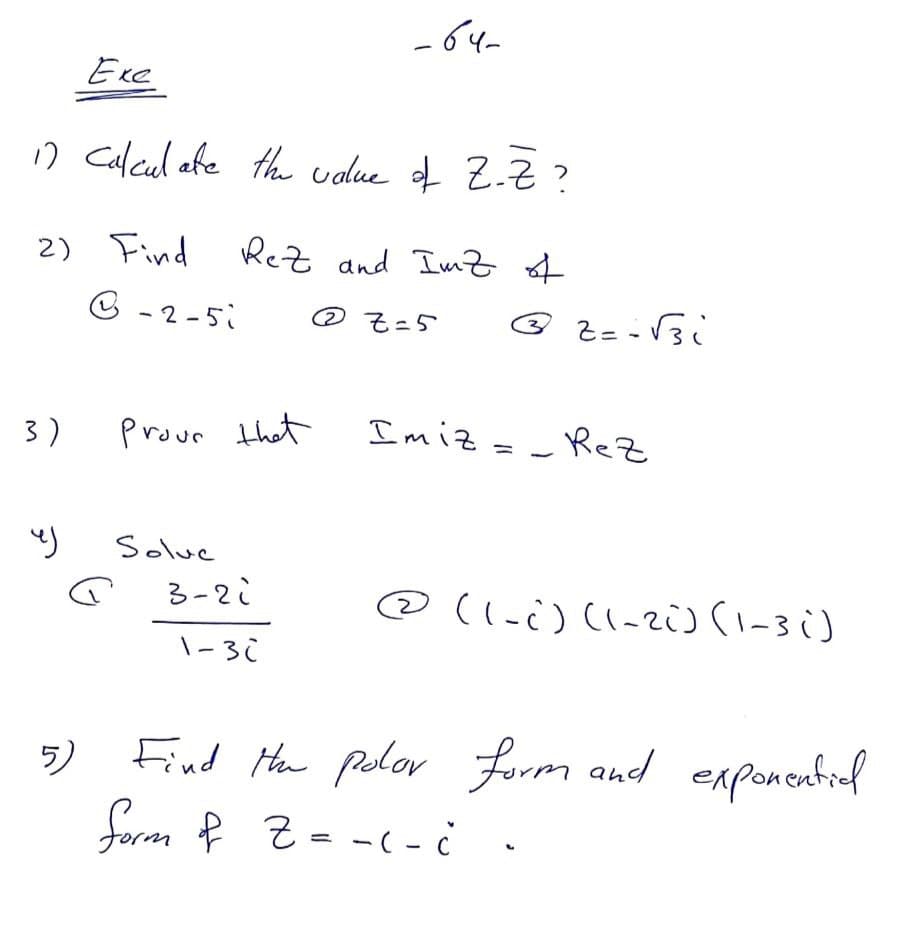 -64-
Exe
1) Calculate the value of Z.Z̄ ?
2) Find Rez and Imz of
① -2-5i ② z=5 ③ z=-√3i
3) Prove that Imiz = - Rez
4) Solve
① 3-2i / 1-3i ② (1-i)(1-2i)(1-3i)
5) Find the polar form and exponential
form of Z = -1-i .